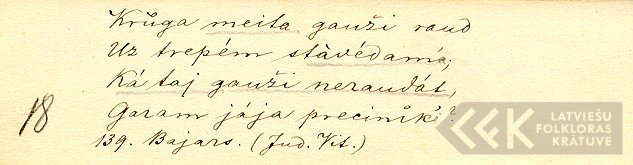 Krůga meita gauži raud
Uz trepém stāvédama,
Ká taj gauži neraudát,
Garam jája preciniki?
18
139. Bajars. (Jud. Vit.)
LATVIEŠU
FOLKLORAS
KRĀTUVE